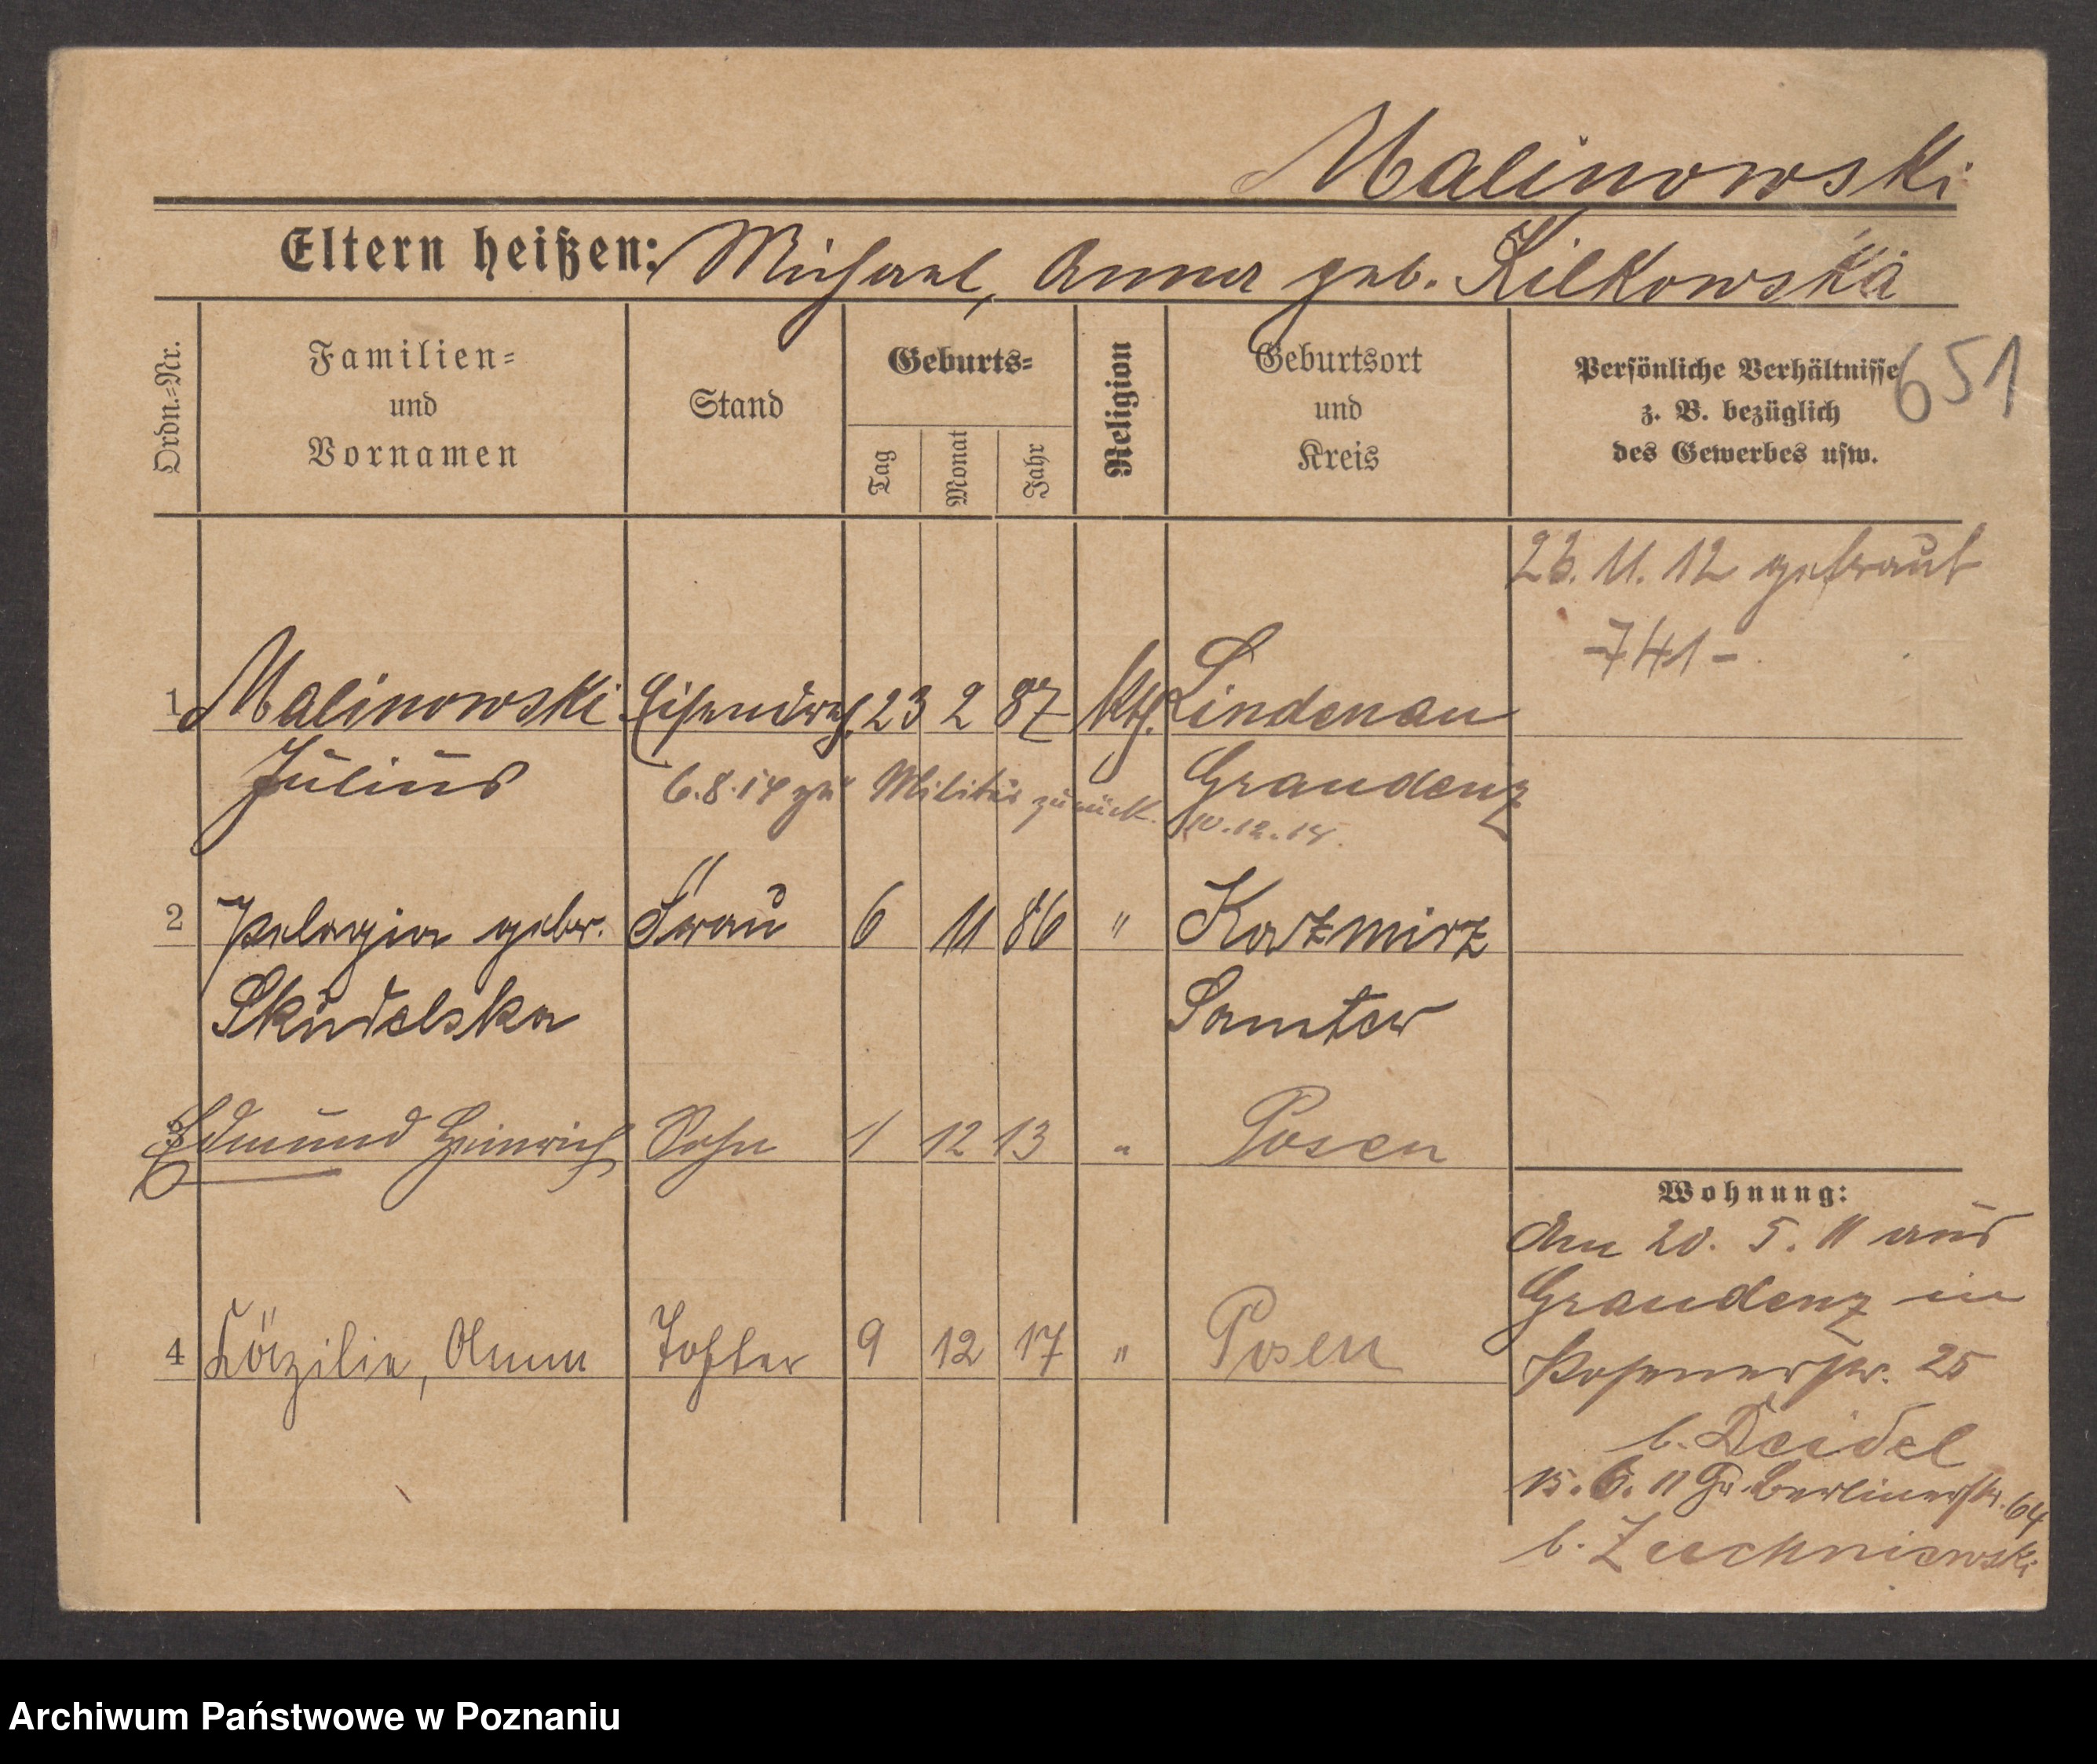 Malinowski
Eltern heißen: Michael, Anna geb. Kilkowska
Ordn.=Nr.
Familien=
und
Vornamen
Stand
Geburts=
Tag
Monat
Jahr
Religion
Geburtsort
und
Kreis
Persönliche Verhältnisse
z. B. bezüglich
des Gewerbes usw.
651
23. 11. 12 getraut
-741-
1 Malinowski Eisendreh. 23 2 87 kth. Lindenau
Julius Graudenz
6.8.14 zu Militär zurück 10.12.14.
2 Pelagia gebr. Frau 6 11 86 " Kazmirz
Skudelska Samter
3 Edmund Heinrich Sohn 1 12 13 " Posen
4 Cäzilie, Anna Tochter 9 12 17 " Posen
Wohnung:
Am 20. 5. 11 aus
Graudenz in
Posenerstr. 25
b. Deidel
15. 6. 11 Gr. Berlinerstr. 64
b.
Archiwum Państwowe w Poznaniu